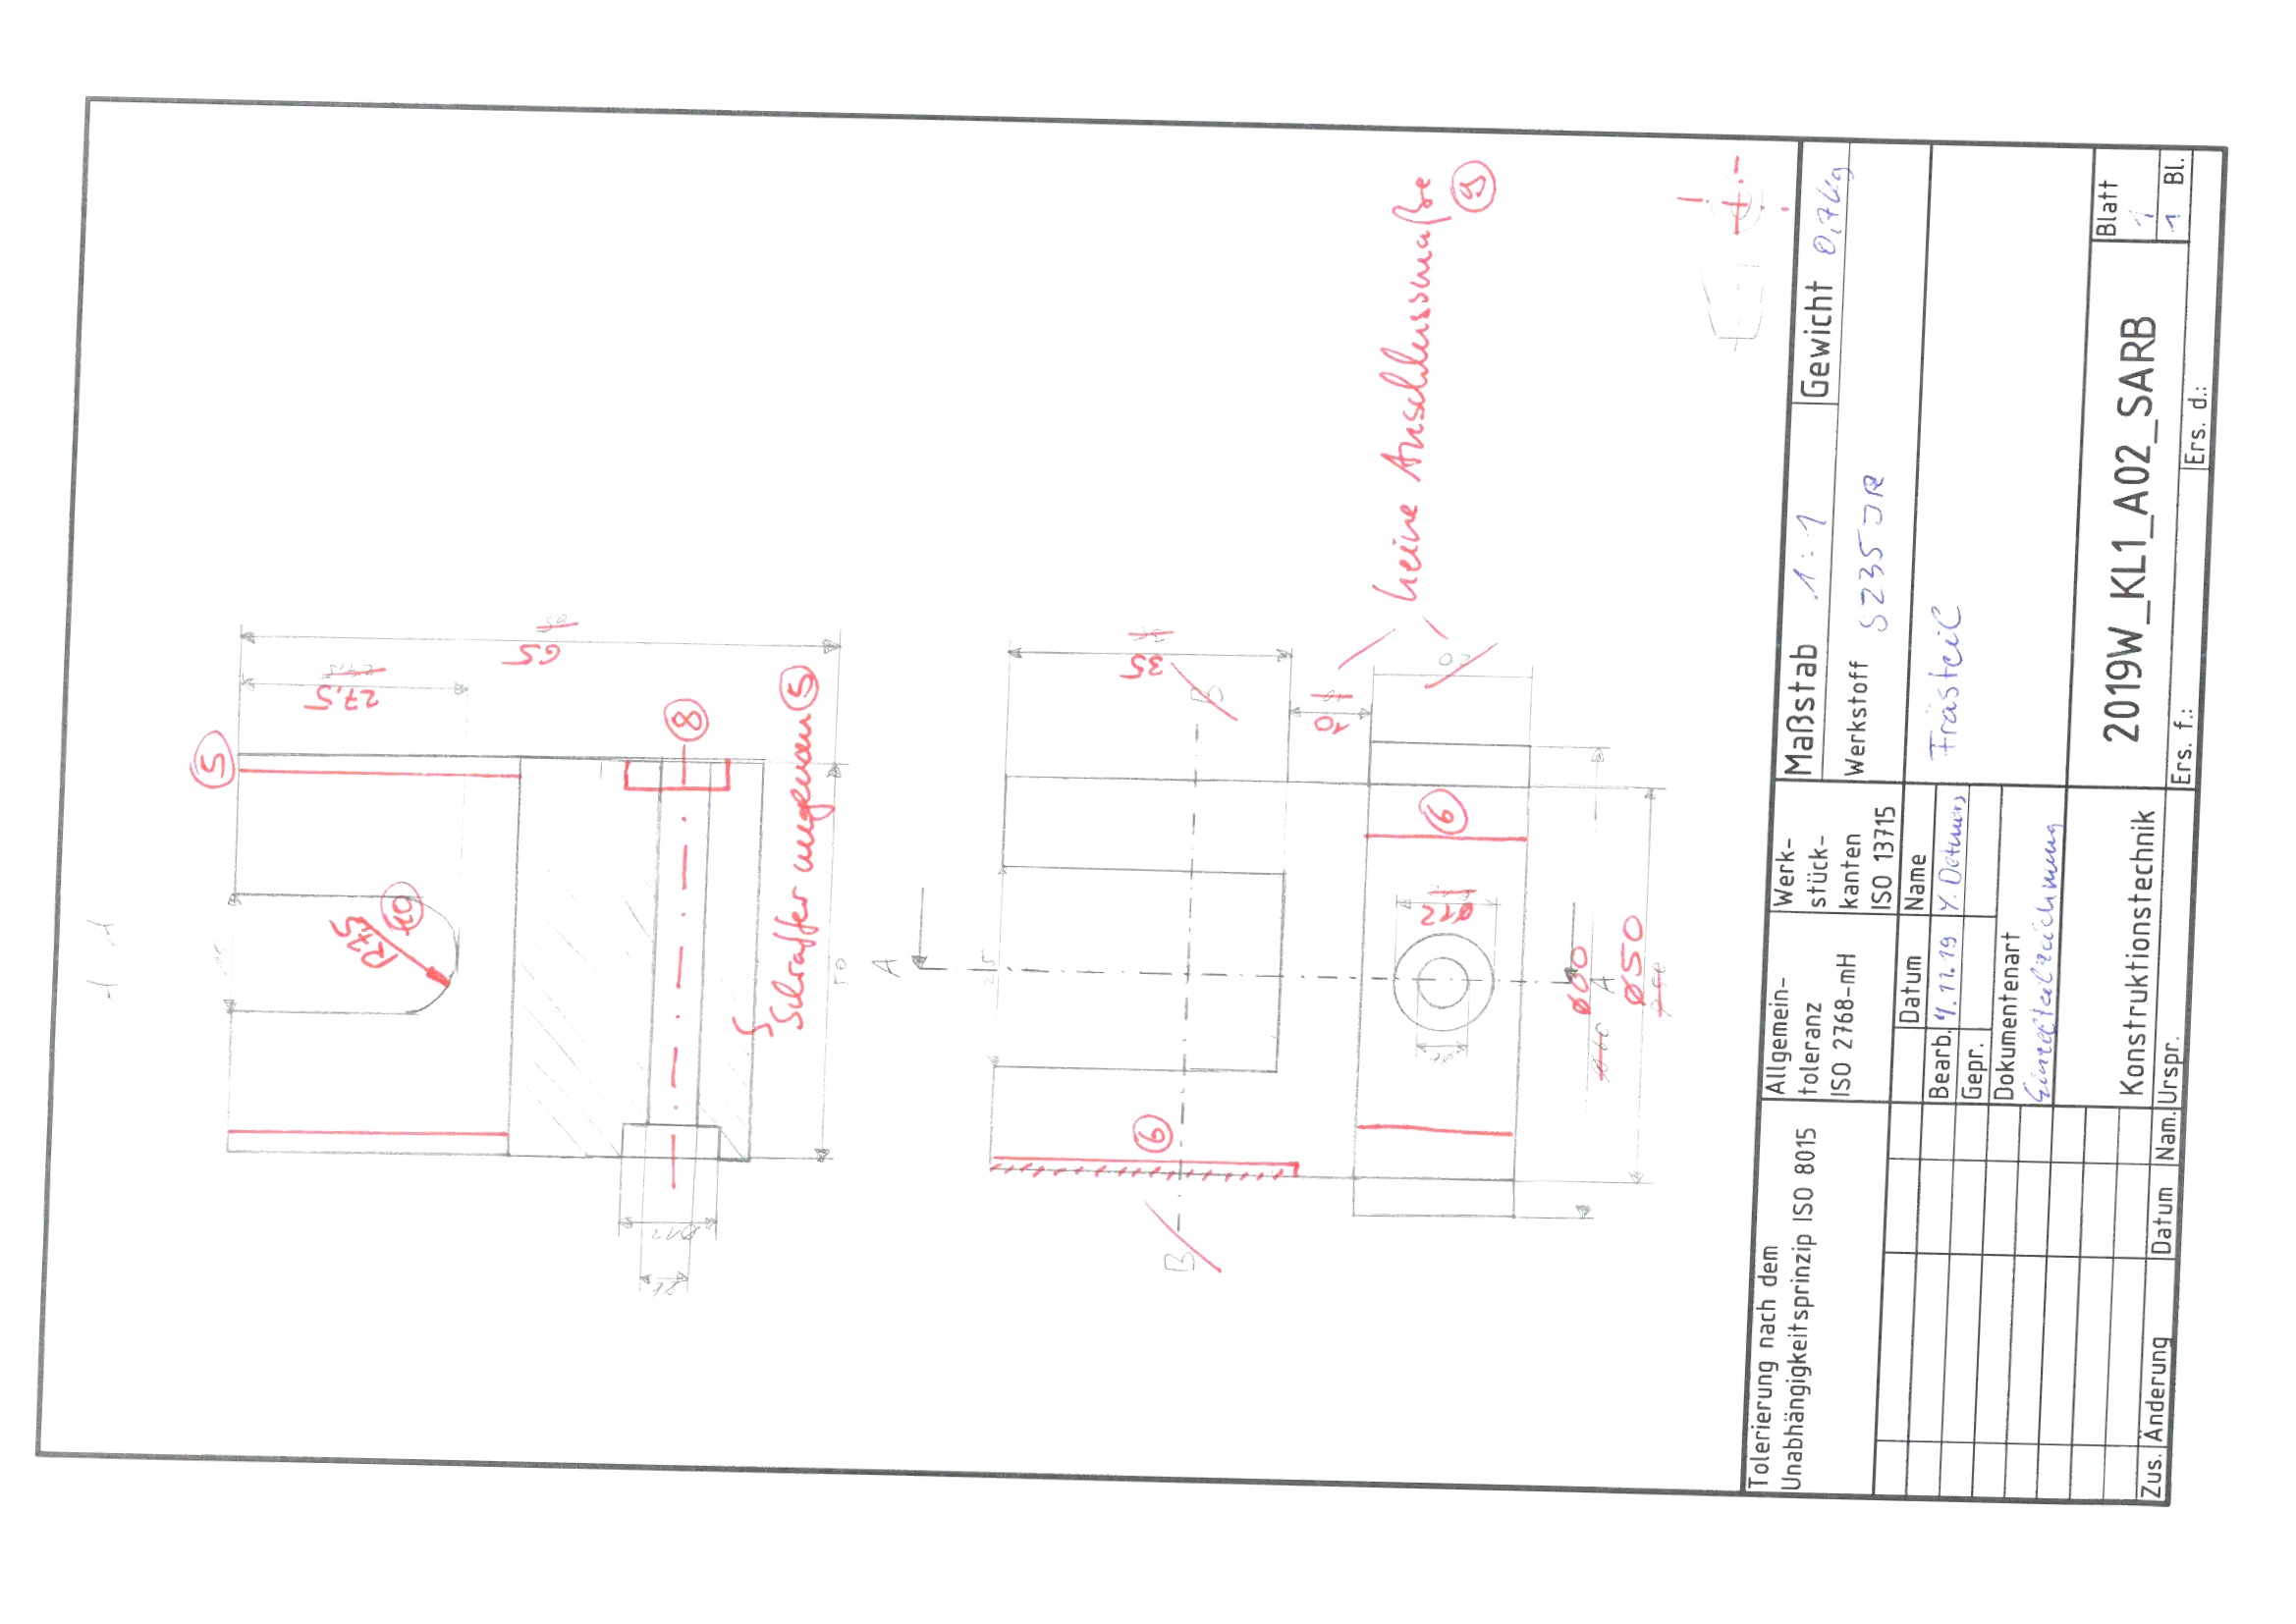 A A
65
27,5
5
8
R7,5
10
Schraffer ungenau 5
50
Ø12
35
B
10
keine Anschlussmaße
9
20
6
A
25
Ø12
Ø60
A
Ø50
6
B
Tolerierung nach dem
Unabhängigkeitsprinzip ISO 8015
Allgemein-
toleranz
ISO 2768-mH
Werk-
stück-
kanten
ISO 13715
Maßstab 1:1
Gewicht 0,7kg
Werkstoff S235JR
Datum
Name
Bearb. 7.11.19 Y. Detmers
Gepr.
Frästeil
Dokumentenart
Einzelteilzeichnung
Konstruktionstechnik
2019W_KL1_A02_SARB
Blatt
1
1 Bl.
Zus.
Änderung
Datum
Nam.
Urspr.
Ers. f.:
Ers. d.: